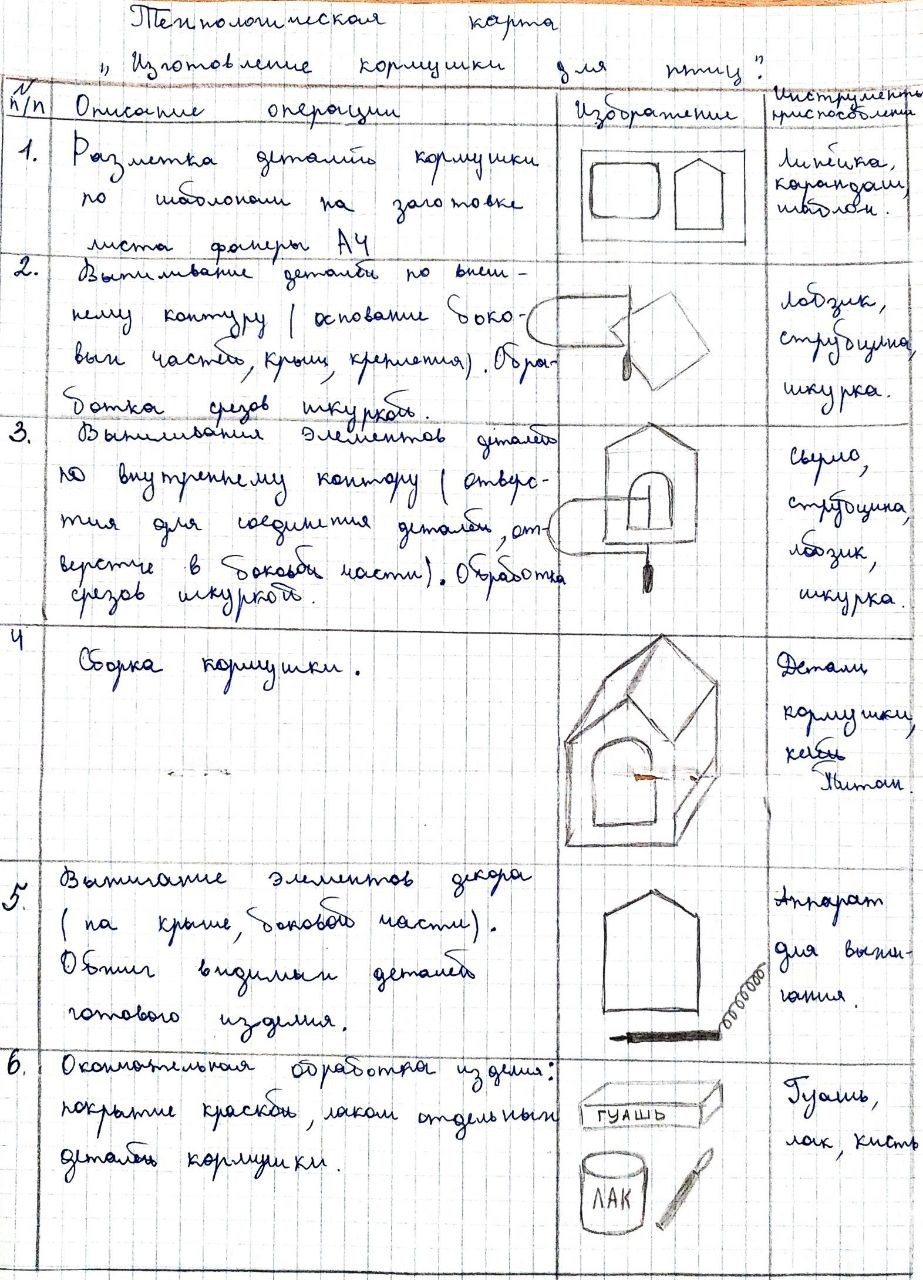 Технологическая карта
„Изготовление кормушки для птиц".
N п/п Описание операции Изображение Инструменты, приспособления
1. Разметка деталей кормушки
по шаблонам на заготовке
листа фанеры А4
Линейка,
карандаш,
шаблон.
2. Выпиливание деталей по внеш-
нему контуру (основание боко-
вых частей, крыш, крепления). Обра-
ботка срезов шкуркой.
Лобзик,
струбцина,
шкурка.
3. Выпиливания элементов деталей
по внутреннему контору (отверс-
тия для соединения деталей, от-
верстие в боковой части). Обработка
срезов шкуркой.
Сверло,
струбцина,
лобзик,
шкурка.
4 Сборка кормушки.
Детали
кормушки,
клей
Титан.
5. Выжигание элементов декора
(на крыше, боковой части).
Обжиг видимых деталей
готового изделия.
Аппарат
для выжи-
гания.
6. Окончательная обработка изделия:
покрытие краской, лаком отдельных
деталей кормушки.
ГУАШЬ
ЛАК
Гуашь,
лак, кисть